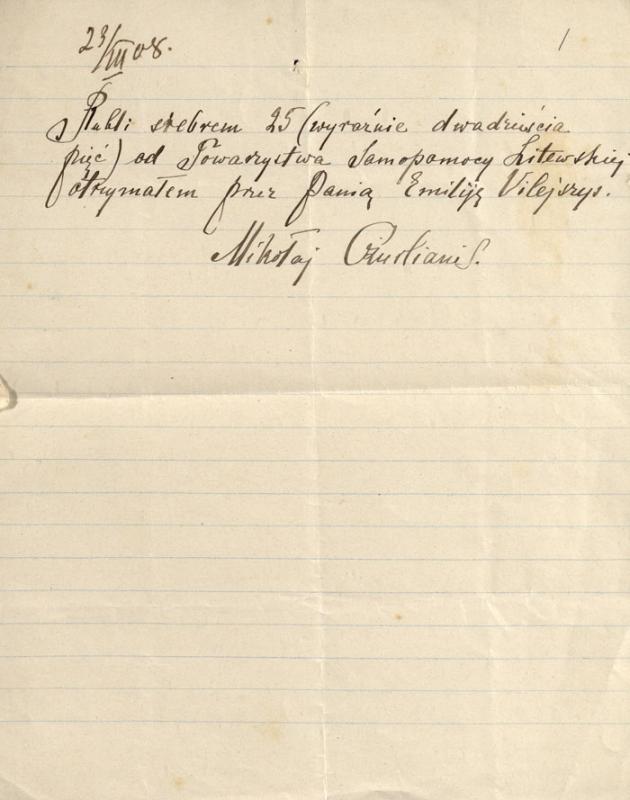 23/XII 08. 1
Rubli srebrem 25 (wyraźnie dwadzieścia
pięć) od Towarzystwa Samopomocy Litewskiej
otrzymałem przez Panią Emiliję Vilejszys.
Mikołaj Czurlianis.